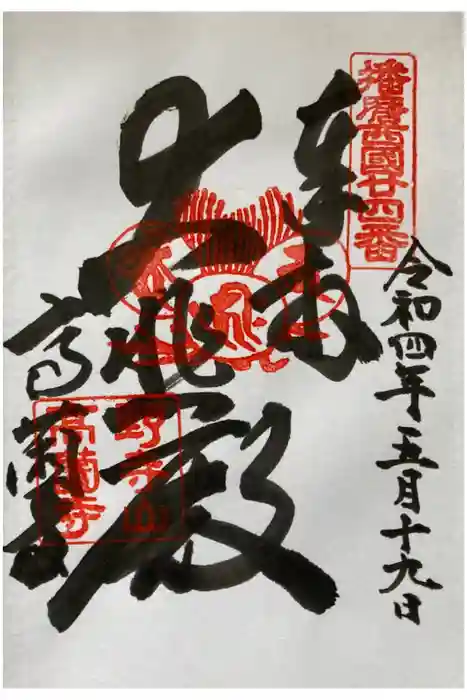 播磨西國廿四番
令和四年五月十九日
奉拝
大悲殿
野寺山
高薗寺
高薗寺